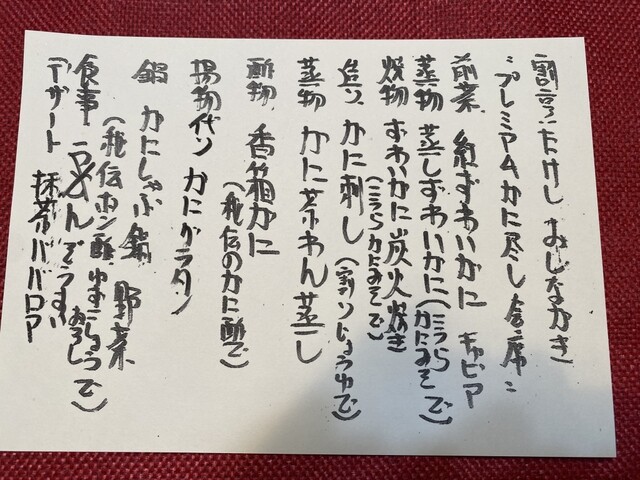 割烹たけし おしながき
プレミアムかに尽し会席
前菜 紅ずわいがに キャビア
蒸物 蒸しずわいかに(こうら
かにみそで)
焼物 ずわいかに炭火焼き
(こうらかにみそで)
造り かに刺し(割りじょうゆで)
蒸物 かに茶わん蒸し
酢物 香箱かに
(秘伝のかに酢で)
揚物代り かにグラタン
鍋 かにしゃぶ鍋 野菜
(秘伝ポン酢、ゆずこしょうで)
おろし
食事 ぞうすい
デザート 抹茶ババロア